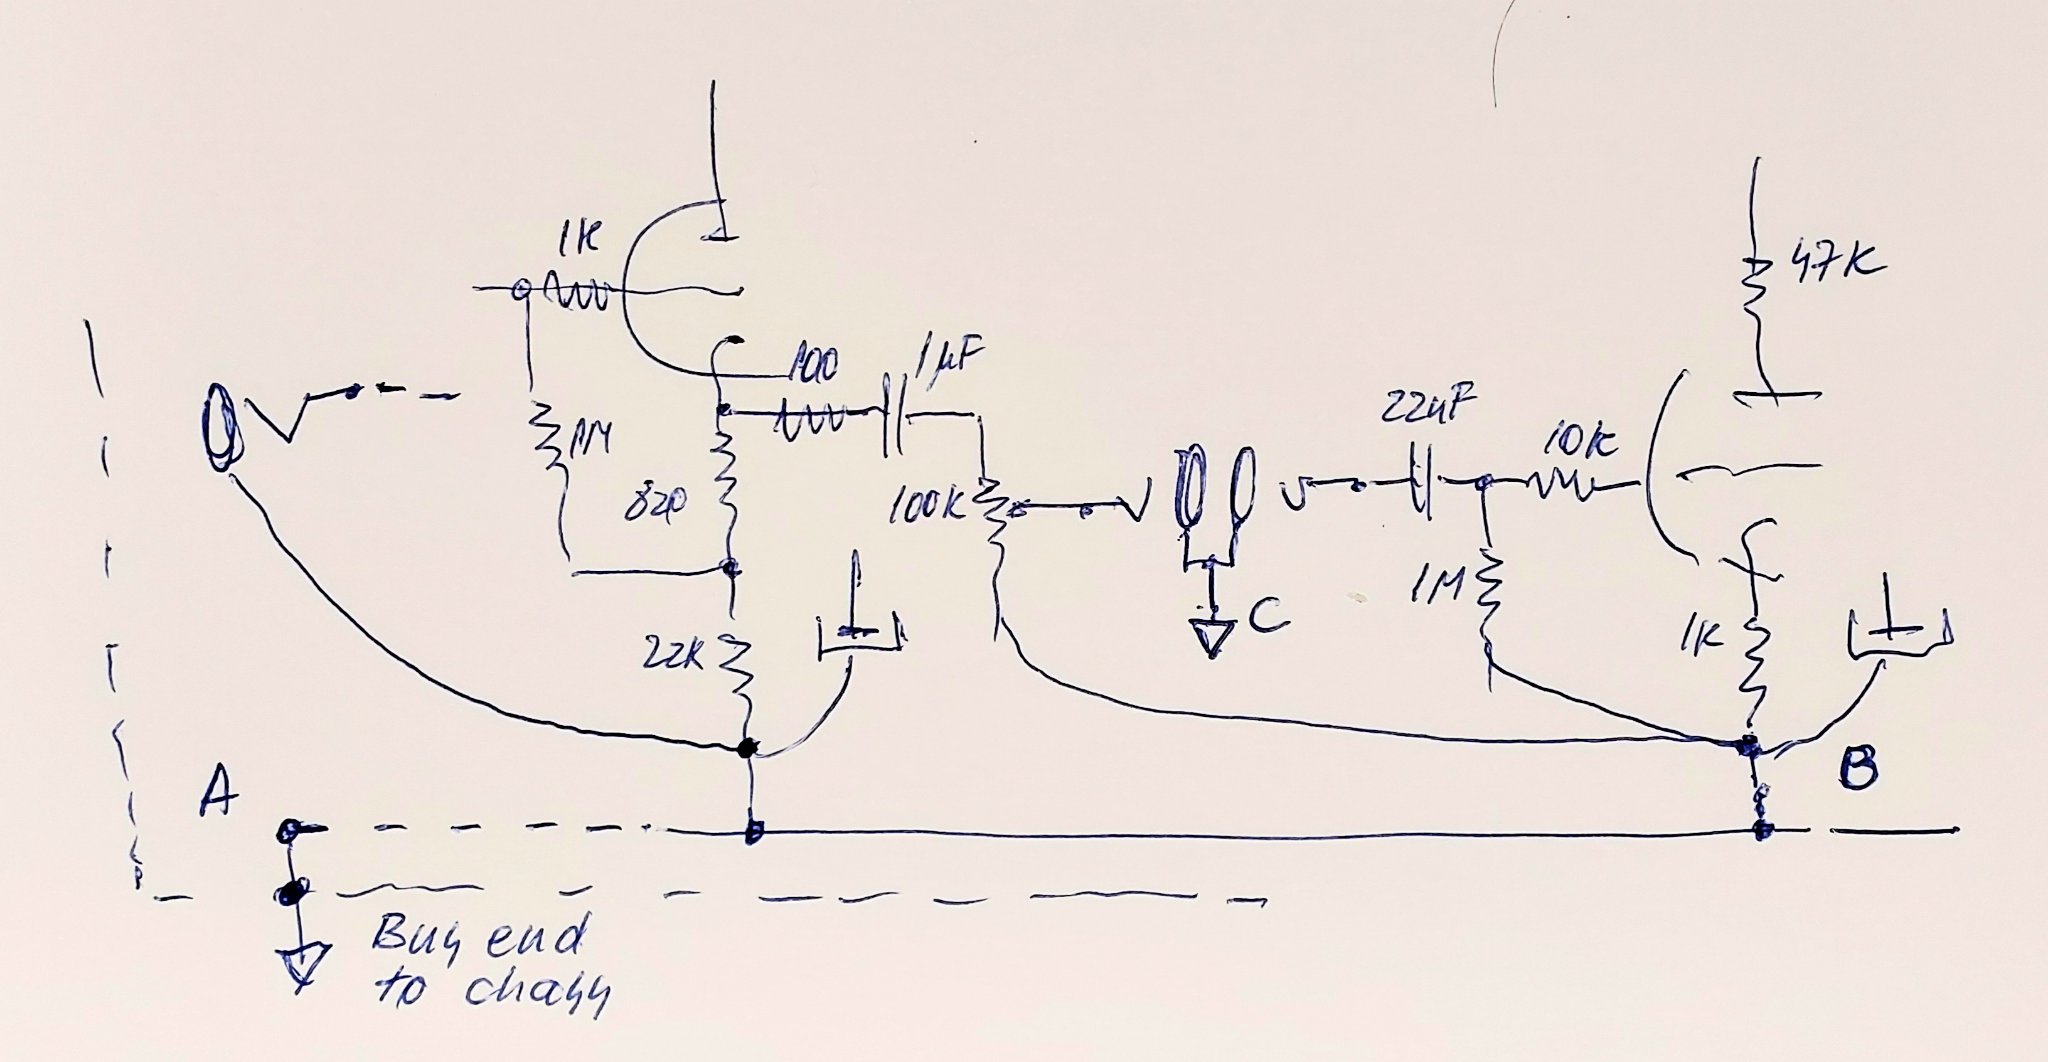 1K
47K
100
1µF
22nF
10K
1M
820
100K
1M
1K
22K
C
A
B
Bus end
to chass